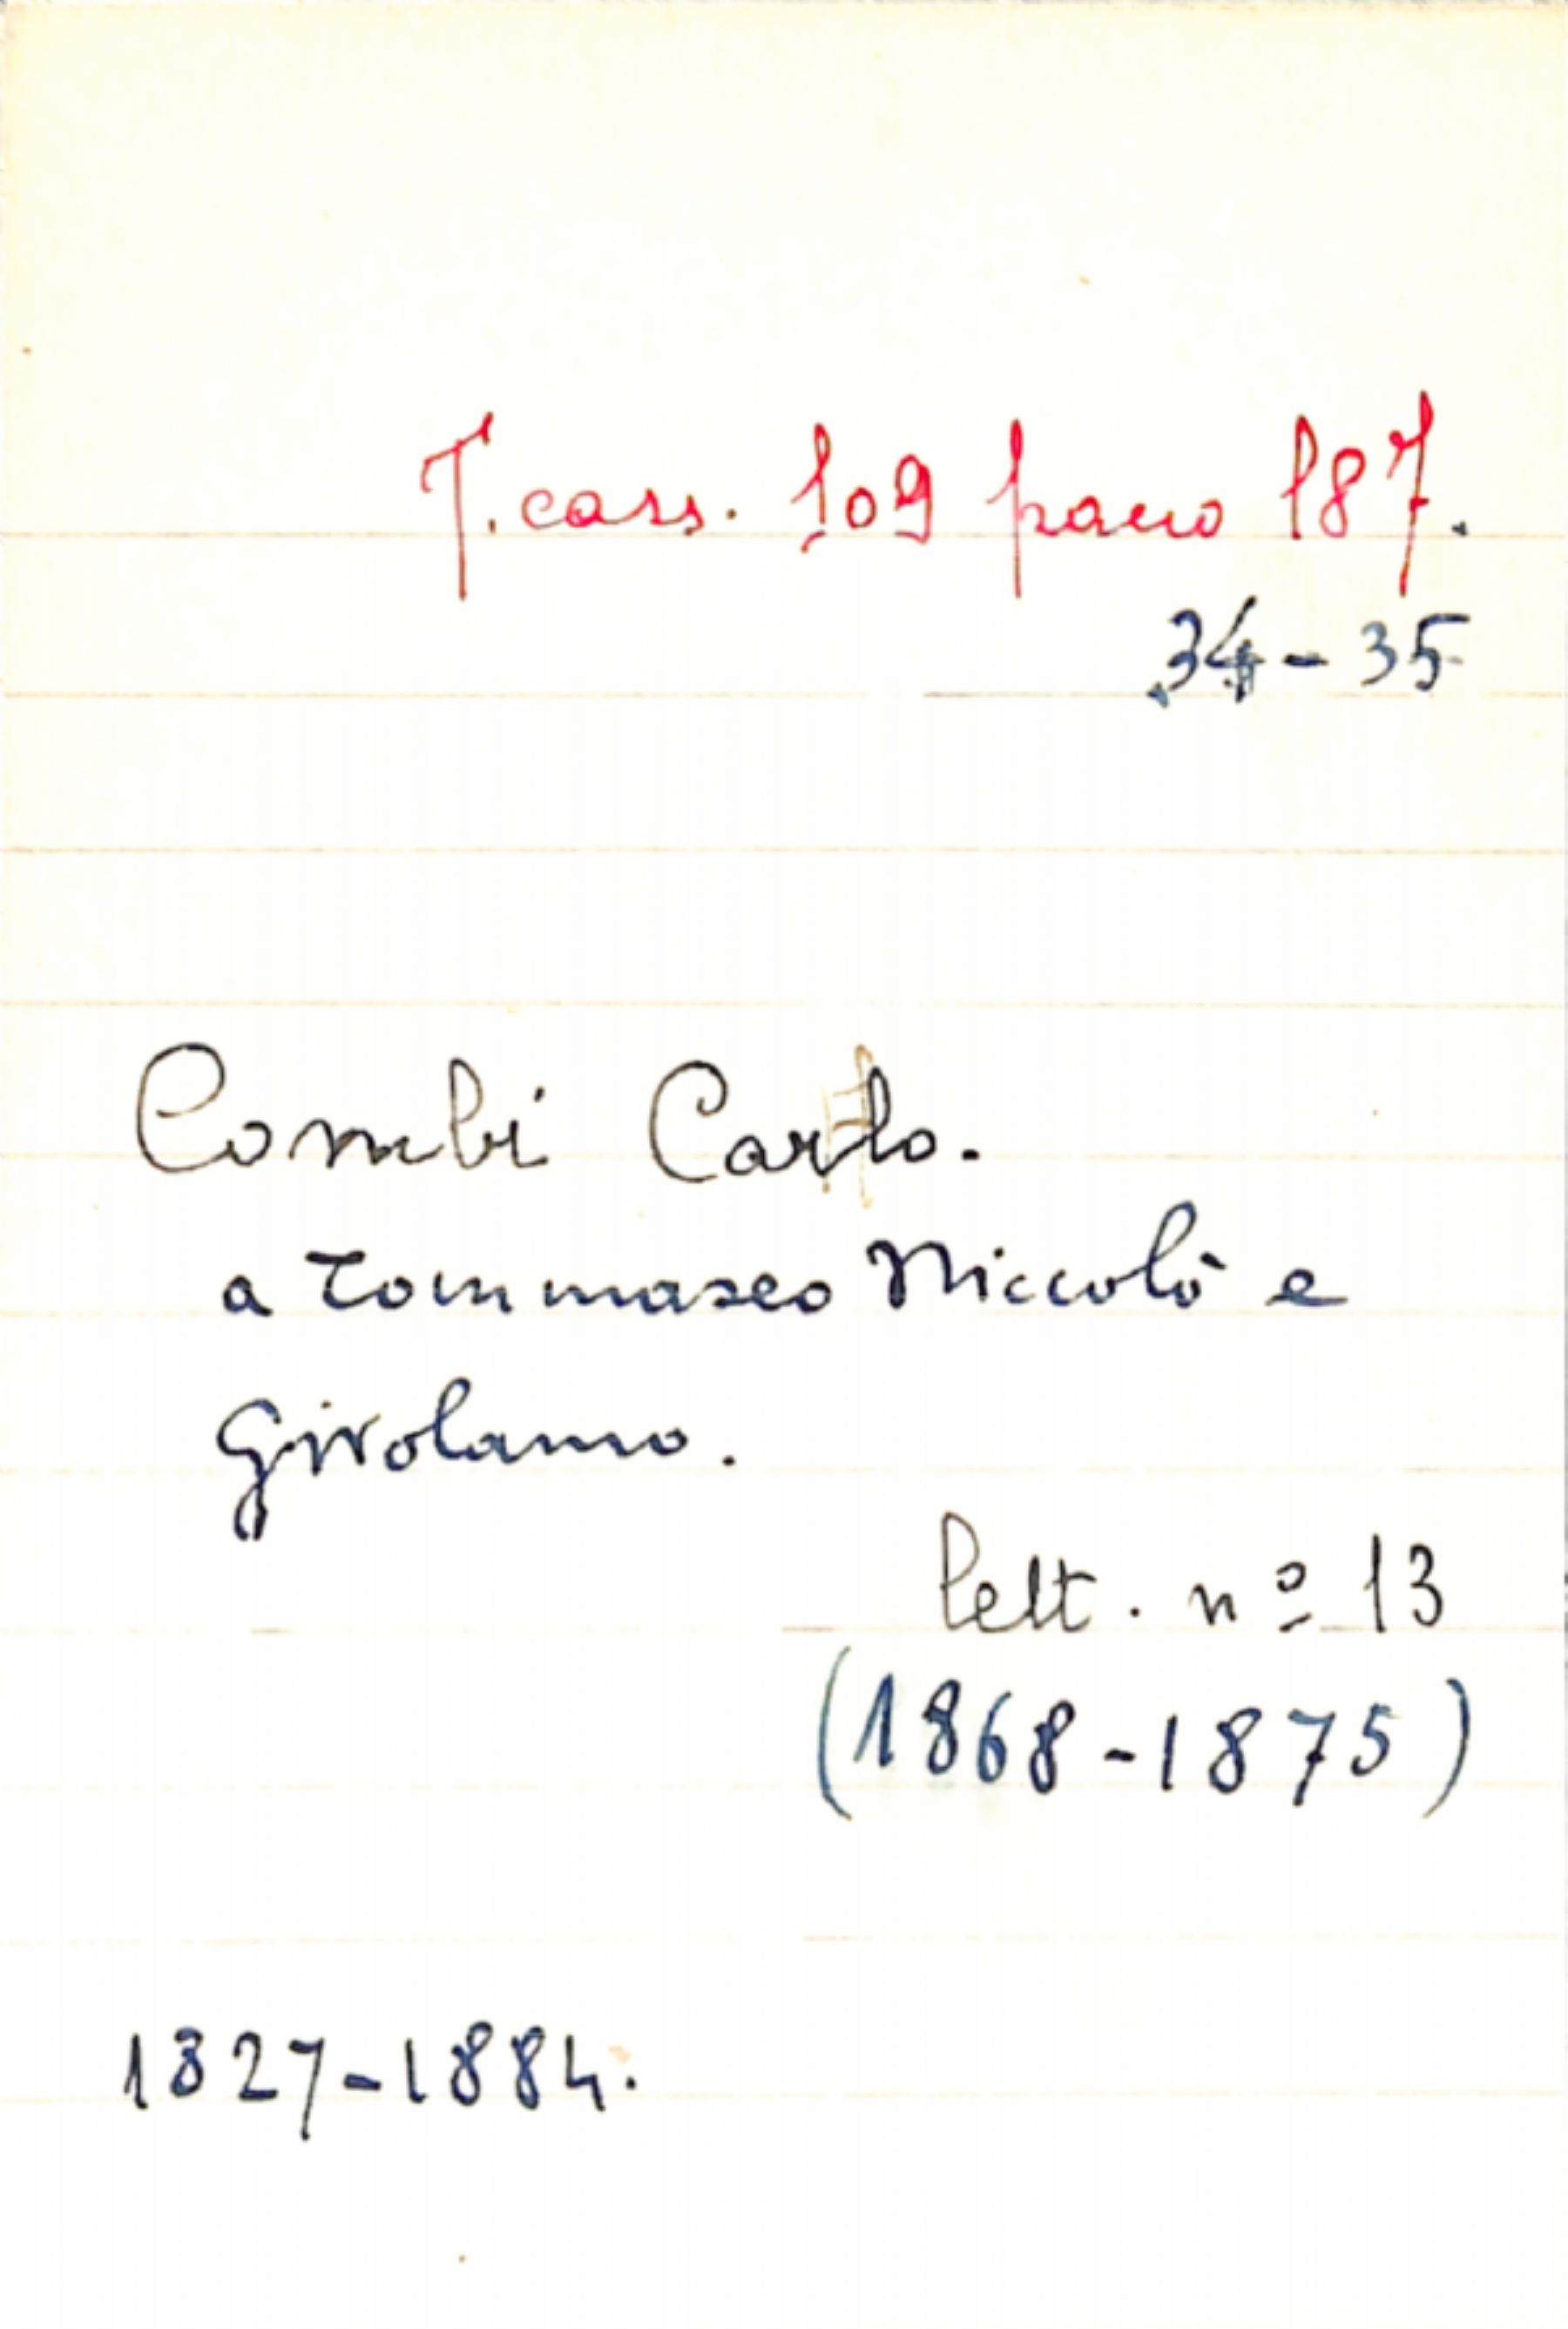 T. cass. 109 pacco 187.
34-35
Combi Carlo.
a Tommaseo Niccolò e
Girolamo.
lett. nº 13
(1868-1875)
1827-1884.